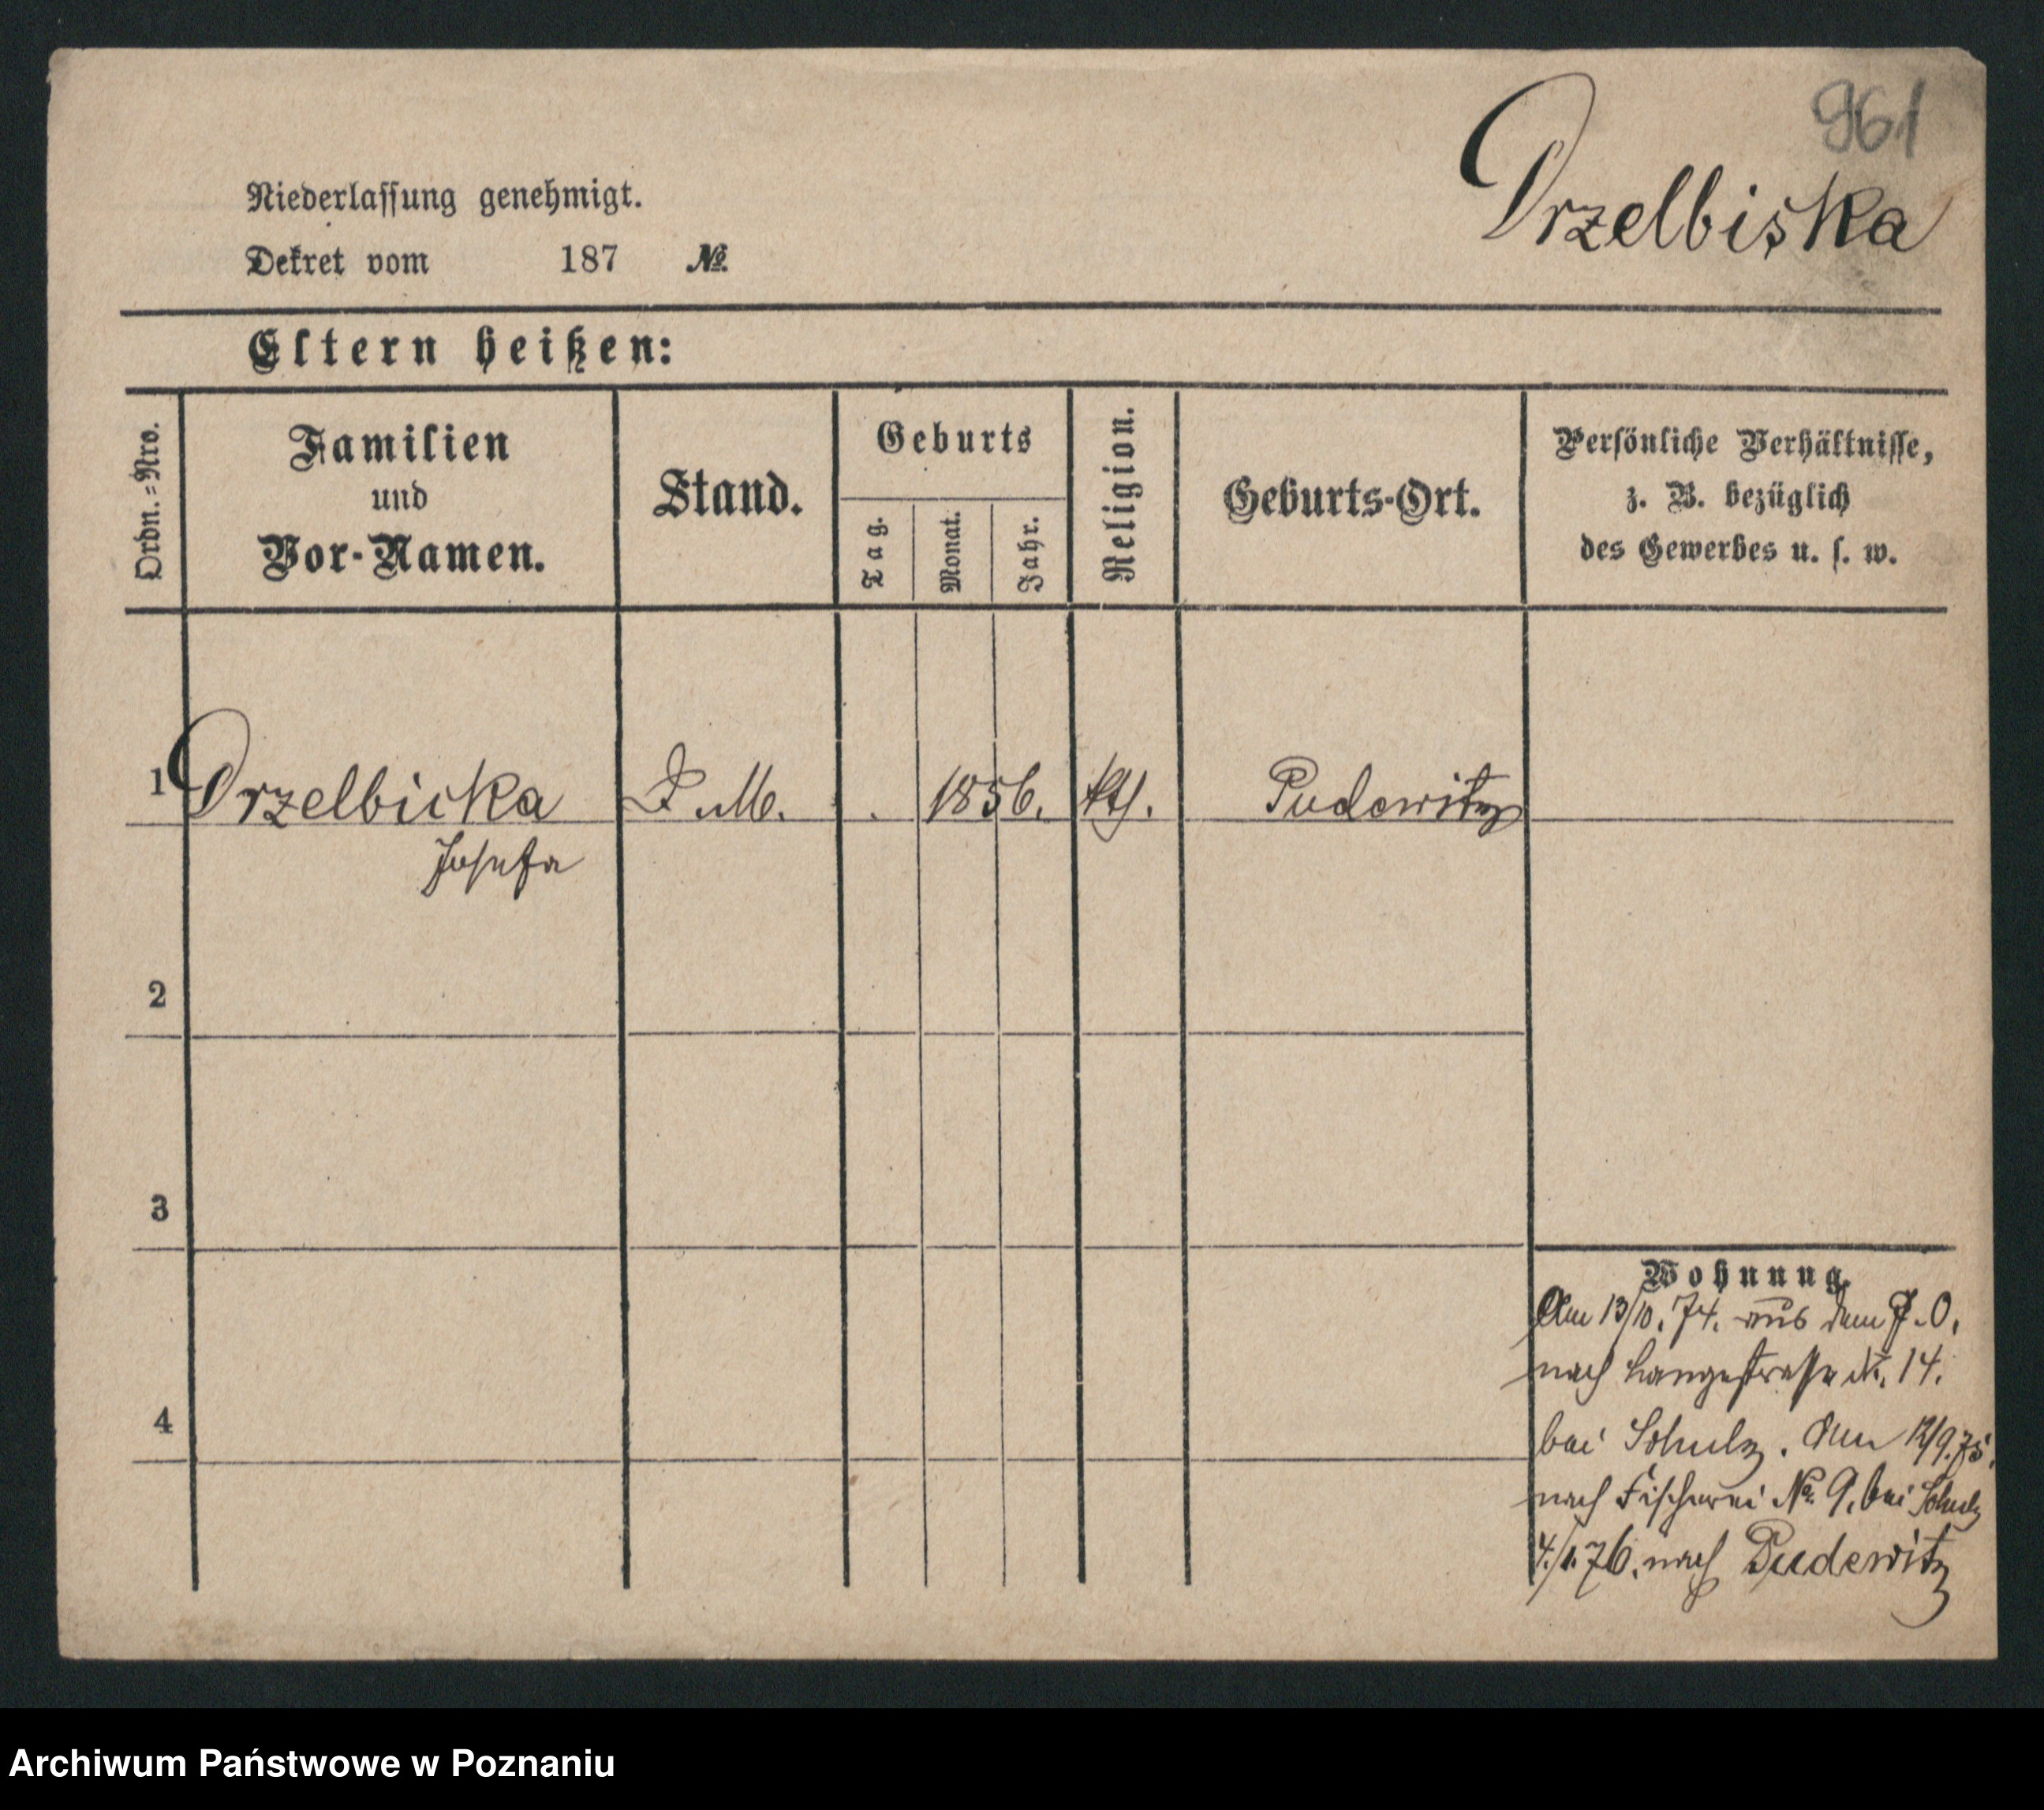 961
Drzelbiska
Niederlassung genehmigt.
Dekret vom 187 №
Eltern heißen:
Ordn.=Nro.
Familien
und
Vor-Namen.
Stand.
Geburts
Tag.
Monat.
Jahr.
Religion.
Geburts-Ort.
Persönliche Verhältnisse,
z. B. bezüglich
des Gewerbes u. s. w.
1 Drzelbiska D. M. . 1856. kth. Pudewitz
Josefa
2
3
4
Wohnung.
Am 13/10. 74. aus dem J. O.
nach Langestrasse N. 14.
bei Schulz. Am 12/9. 75.
nach Fischerei No 9, bei Schulz
4./1. 76. nach Pudewitz
Archiwum Państwowe w Poznaniu